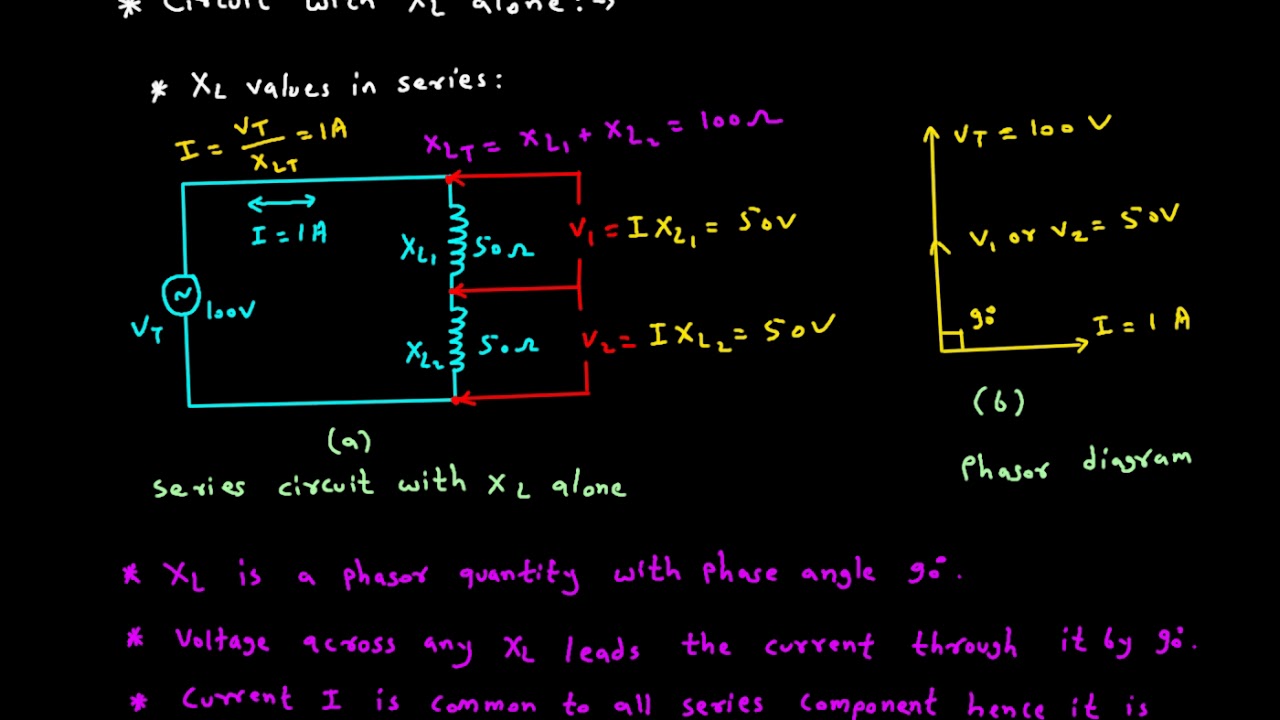 * Circuit with XL alone:→
* XL values in series:
I = VT/XLT = 1A
XLT = XL1 + XL2 = 100Ω
I = 1A
XL1 50Ω
V1 = I XL1 = 50V
VT 100V
XL2 50Ω
V2 = I XL2 = 50V
(a)
series circuit with XL alone
VT = 100 V
V1 or V2 = 50V
90°
I = 1 A
(b)
Phasor diagram
* XL is a phasor quantity with phase angle 90°.
* Voltage across any XL leads the current through it by 90°.
* Current I is common to all series component hence it is